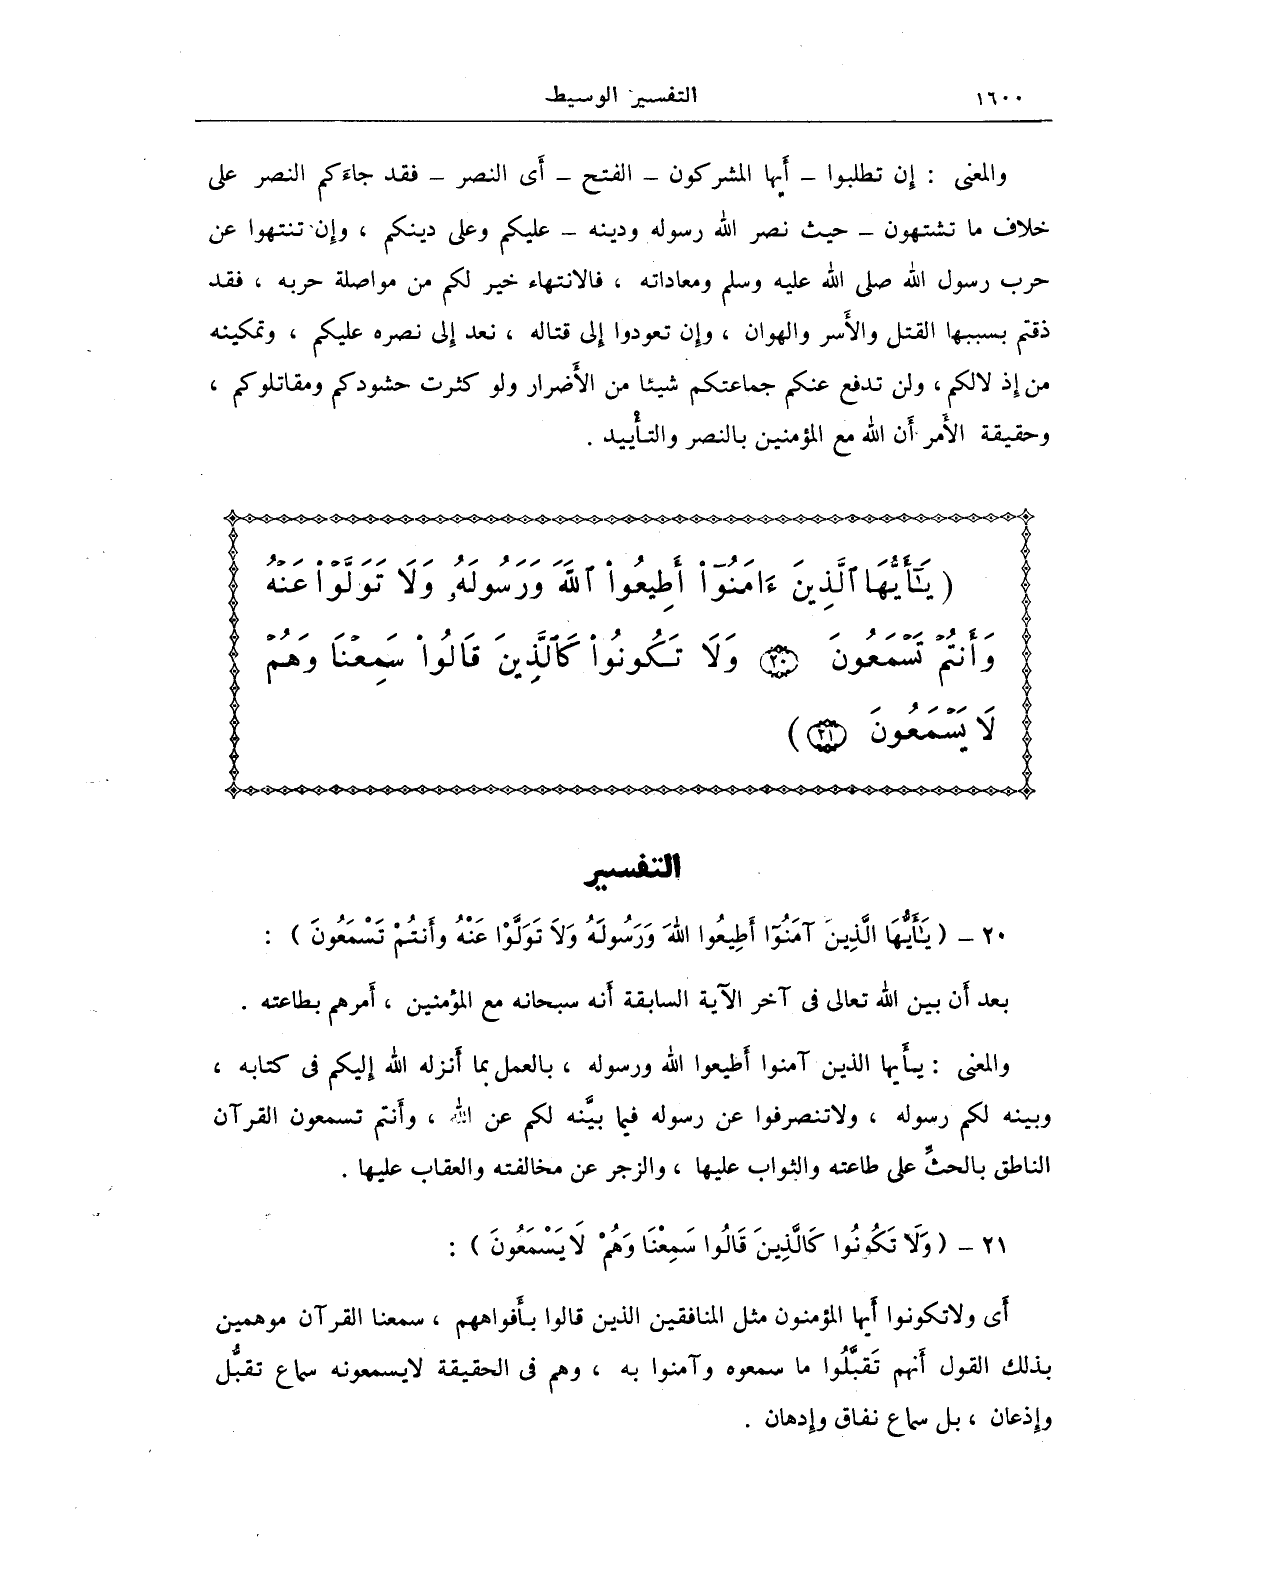 ١٦٠٠ التفسير الوسيط
والمعنى : إن تطلبوا – أيها المشركون – الفتح – أى النصر – فقد جاءكم النصر على
خلاف ما تشتهون – حيث نصر الله رسوله ودينه – عليكم وعلى دينكم ، وإن تنتهوا عن
حرب رسول الله صلى الله عليه وسلم ومعاداته ، فالانتهاء خير لكم من مواصلة حربه ، فقد
ذقتم بسببها القتل والأسر والهوان ، وإن تعودوا إلى قتاله ، نعد إلى نصره عليكم ، وتمكينه
من إذ لالكم ، ولن تدفع عنكم جماعتكم شيئا من الأضرار ولو كثرت حشودكم ومقاتلوكم ،
وحقيقة الأمر أن الله مع المؤمنين بالنصر والتأييد .
( يَٰٓأَيُّهَا ٱلَّذِينَ ءَامَنُوٓا۟ أَطِيعُوا۟ ٱللَّهَ وَرَسُولَهُۥ وَلَا تَوَلَّوْا۟ عَنْهُ
وَأَنتُمْ تَسْمَعُونَ ﴿٢٠﴾ وَلَا تَكُونُوا۟ كَٱلَّذِينَ قَالُوا۟ سَمِعْنَا وَهُمْ
لَا يَسْمَعُونَ ﴿٢١﴾ )
التفسير
٢٠ – ( يَٰٓأَيُّهَا الَّذِينَ آمَنُوٓا أَطِيعُوا اللهَ وَرَسُولَهُ وَلَا تَوَلَّوْا عَنْهُ وَأَنتُمْ تَسْمَعُونَ ) :
بعد أن بين الله تعالى فى آخر الآية السابقة أنه سبحانه مع المؤمنين ، أمرهم بطاعته .
والمعنى : يأيها الذين آمنوا أطيعوا الله ورسوله ، بالعمل بما أنزله الله إليكم فى كتابه ،
وبينه لكم رسوله ، ولاتنصرفوا عن رسوله فيما بيَّنه لكم عن الله ، وأنتم تسمعون القرآن
الناطق بالحثِّ على طاعته والثواب عليها ، والزجر عن مخالفته والعقاب عليها .
٢١ – ( وَلَا تَكُونُوا كَالَّذِينَ قَالُوا سَمِعْنَا وَهُمْ لَا يَسْمَعُونَ ) :
أى ولاتكونوا أيها المؤمنون مثل المنافقين الذين قالوا بأفواههم ، سمعنا القرآن موهمين
بذلك القول أنهم تَقبَّلُوا ما سمعوه وآمنوا به ، وهم فى الحقيقة لايسمعونه سماع تقبُّل
وإذعان ، بل سماع نفاق وإدهان .